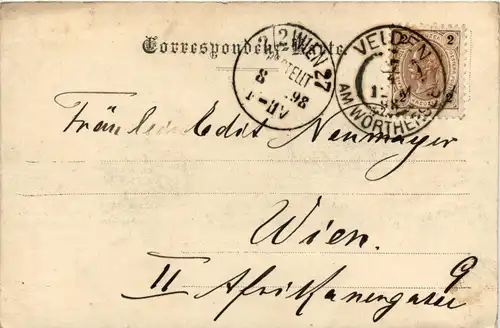 Correspondenz-Karte.
2 2 WIEN 27
BESTELLT
8 98
VELDEN
AM WÖRTHERSEE
2 2
2 2
Fräulein Edit Neumayer
Wien.
II Afrikanergasse 9